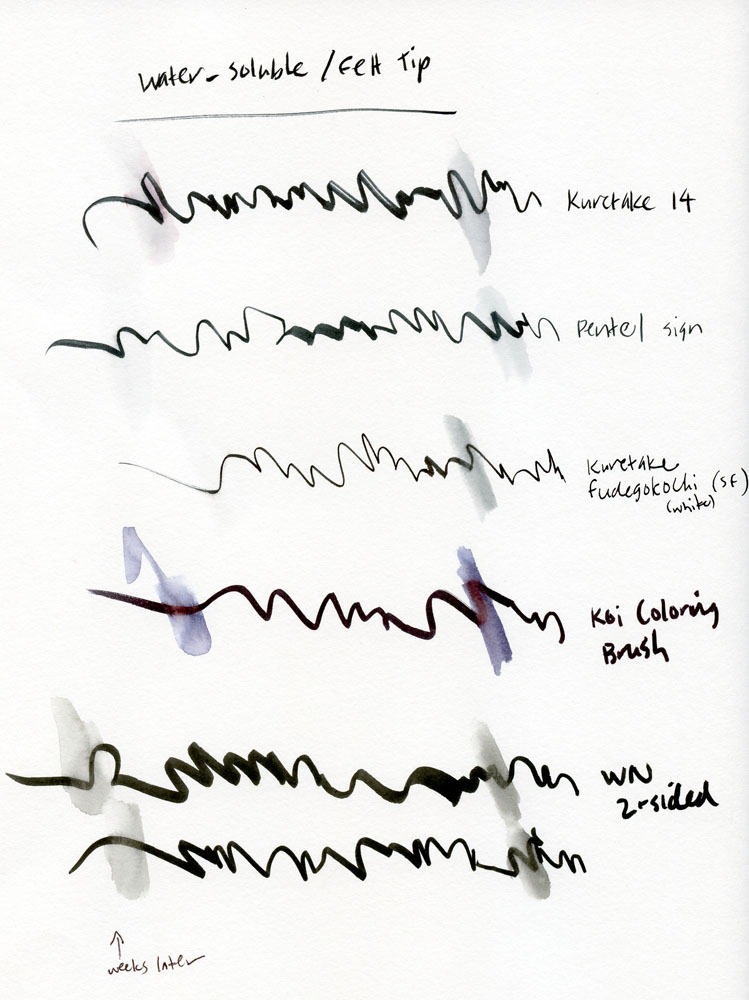 water-soluble / Felt Tip
Kuretake 14
Pentel sign
Kuretake
fudegokochi (SF)
(white)
Koi Coloring
Brush
WN
2-sided
↑
weeks later